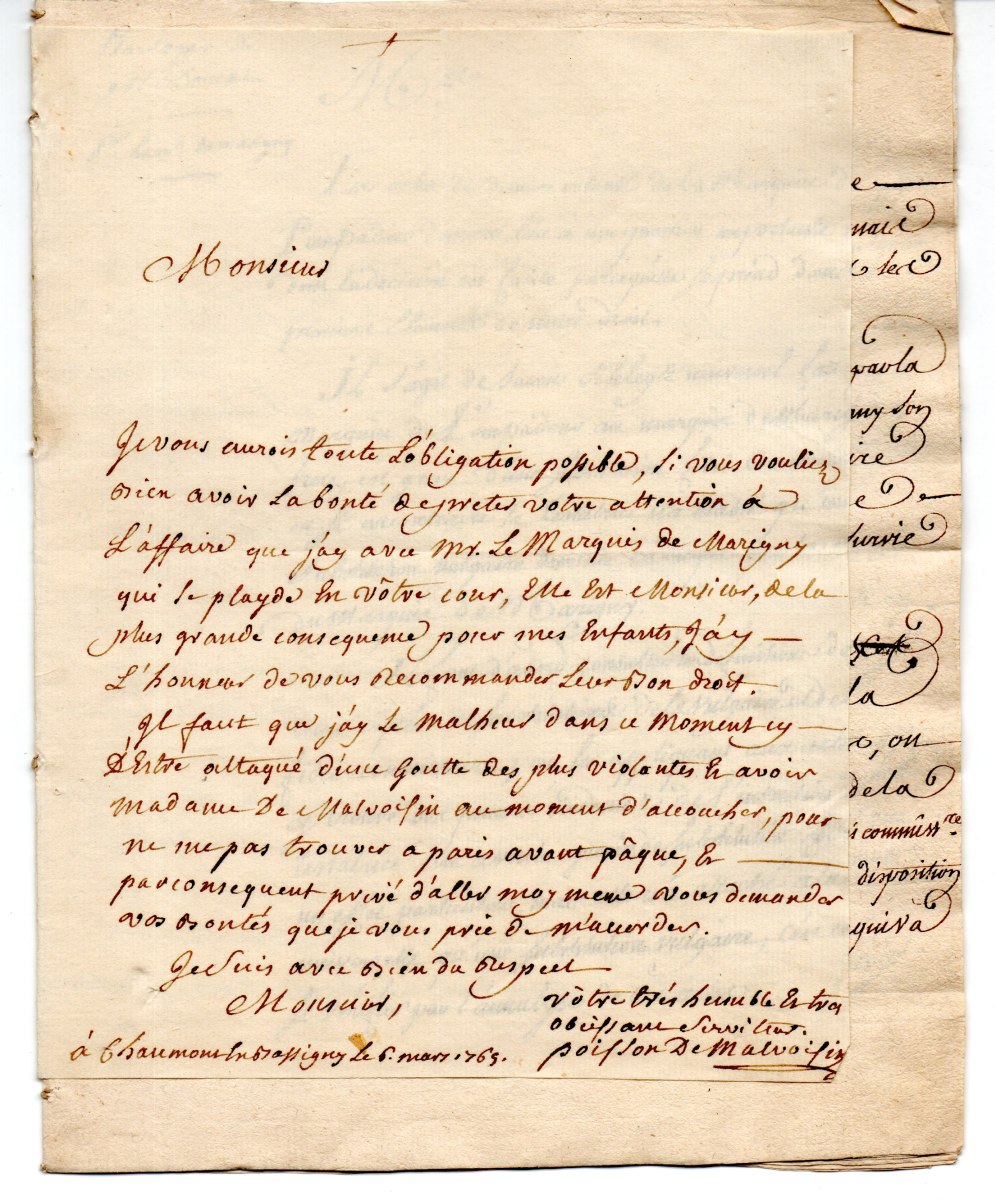 Monsieur
Je vous aurois toute L'obligation possible, si vous vouliez
bien avoir La bonté de preter votre attention à
L'affaire que j'ay avec Mr. Le Marquis de Marigny
qui se playde En vôtre cour, Elle Est Monsieur, de la
plus grande consequence pour mes Enfants, J'ay
L'honneur de vous Recommander Leur bon droit.
Il faut que j'ay Le Malheur dans ce Moment cy
D'Estre attaqué d'une Goutte des plus violantes Et avoir
Madame De Malvoisin au moment d'accoucher, pour
ne me pas trouver a paris avant pâque, Et
par consequent privé d'aller moy meme vous demander
vos bontés que je vous prie de m'accorder.
Je suis avec bien du Respect
Monsieur,
vôtre trés humble Et tres
obeissant Serviteur.
à Chaumont En Bassigny Le 6. mars 1765.
poisson De Malvoisin
e
naie
les
par la
my son
vie
e De
survie
la
o, on
de la
commiss.re
disposition
qui va